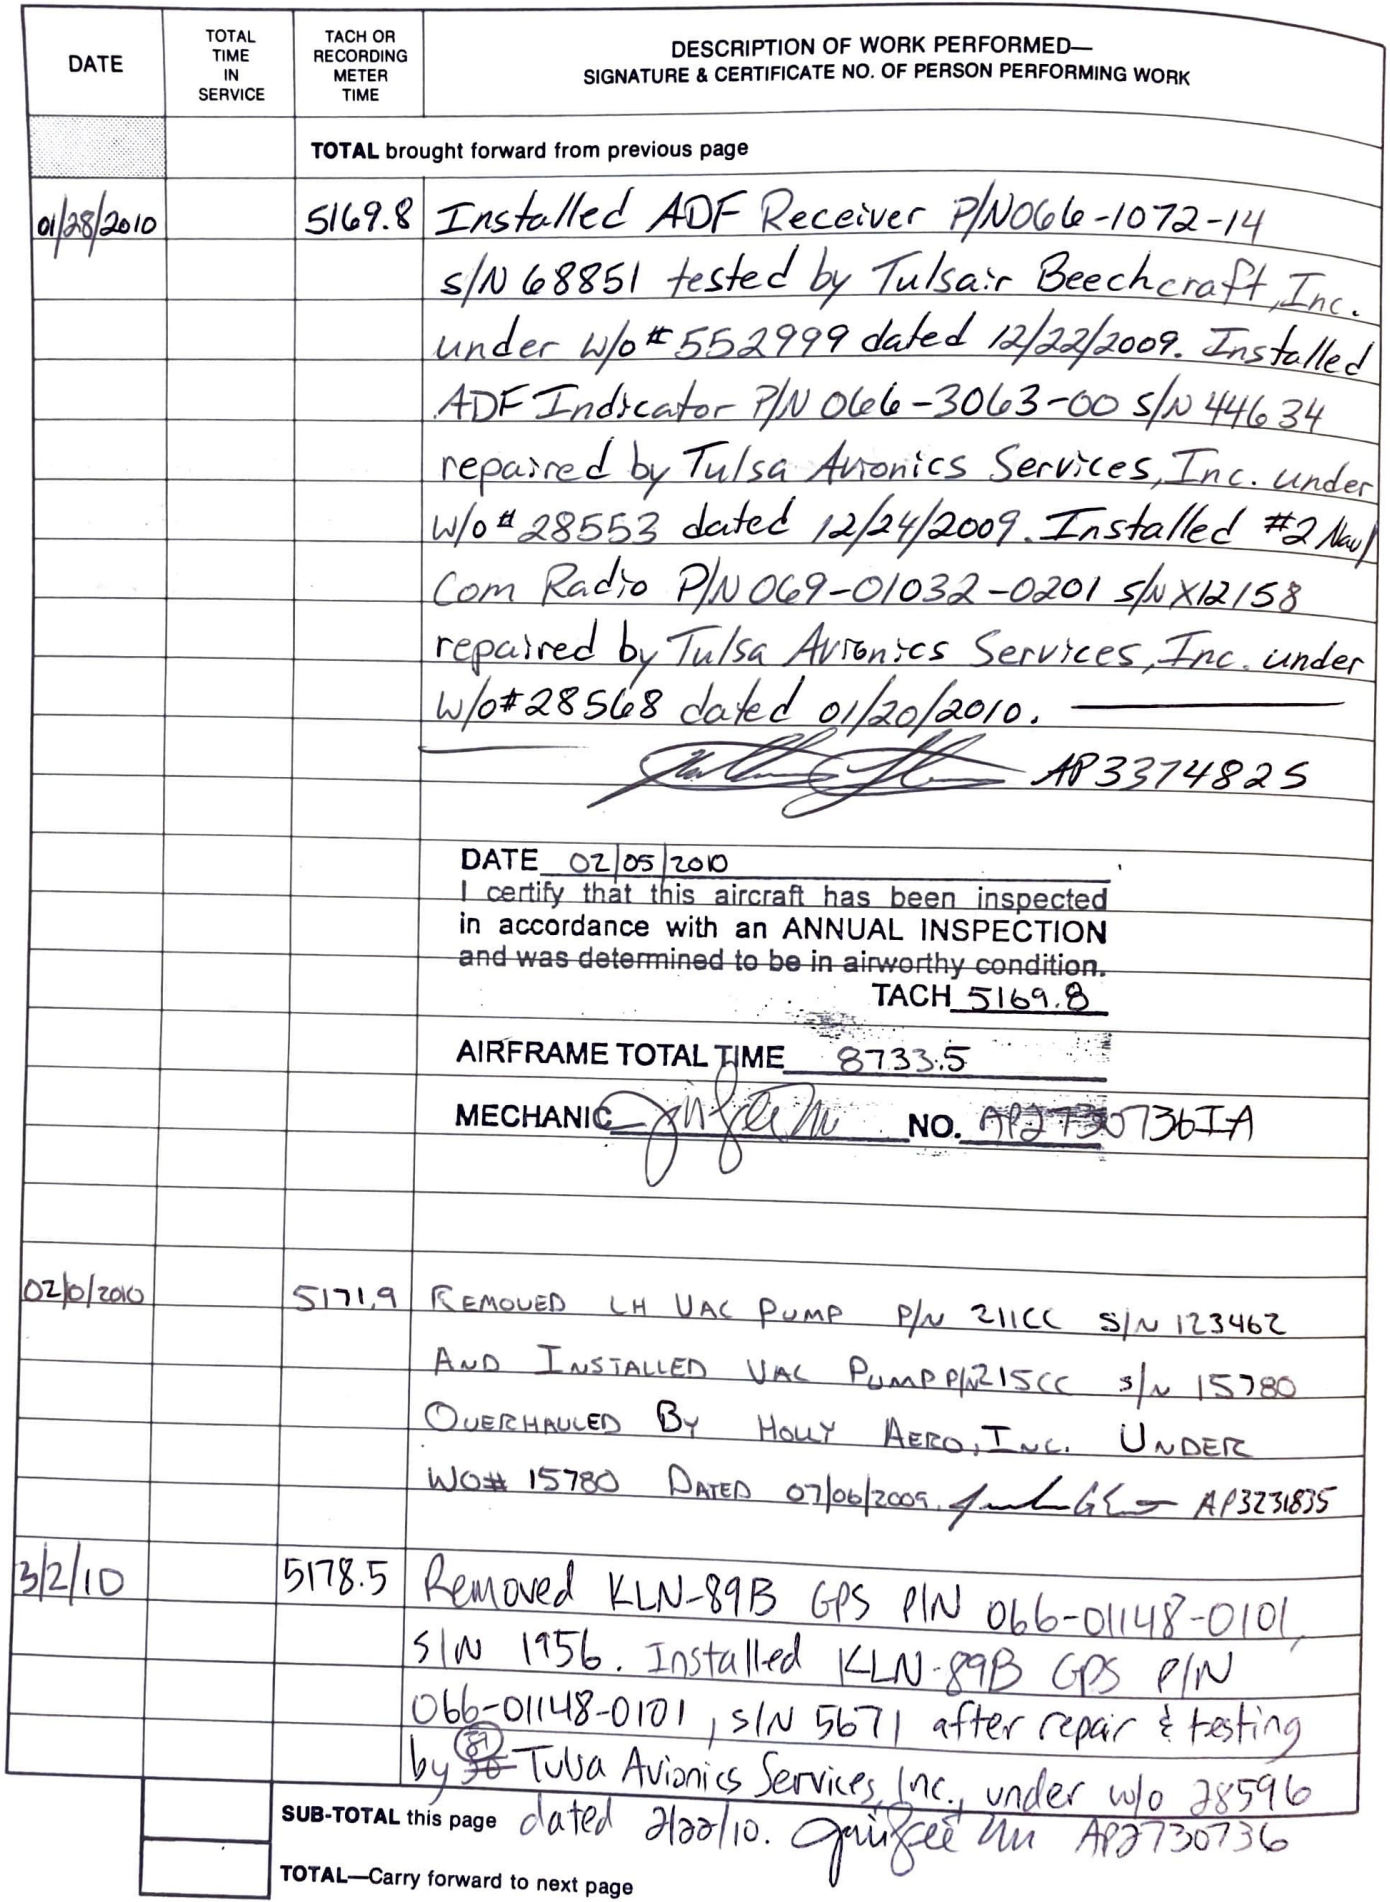 DATE
TOTAL
TIME
IN
SERVICE
TACH OR
RECORDING
METER
TIME
DESCRIPTION OF WORK PERFORMED—
SIGNATURE & CERTIFICATE NO. OF PERSON PERFORMING WORK
TOTAL brought forward from previous page
01/28/2010 5169.8 Installed ADF Receiver P/N 066-1072-14
s/N 68851 tested by Tulsair Beechcraft, Inc.
under w/o # 552999 dated 12/22/2009. Installed
ADF Indicator P/N 066-3063-00 s/N 44634
repaired by Tulsa Avionics Services, Inc. under
w/o # 28553 dated 12/24/2009. Installed #2 Nav/
Com Radio P/N 069-01032-0201 s/N X12158
repaired by Tulsa Avionics Services, Inc. under
w/o # 28568 dated 01/20/2010.
AP3374825
DATE 02/05/2010
I certify that this aircraft has been inspected
in accordance with an ANNUAL INSPECTION
and was determined to be in airworthy condition.
TACH 5169.8
AIRFRAME TOTAL TIME 8733.5
MECHANIC NO. AP2730736IA
5171.9 REMOVED LH VAC PUMP P/N 211CC S/N 123462
AND INSTALLED VAC PUMP P/N 215CC s/N 15780
OVERHAULED BY HOLLY AERO, INC. UNDER
WO# 15780 DATED 07/06/2009. AP3231835
3/2/10 5178.5 Removed KLN-89B GPS P/N 066-01148-0101,
S/N 1956. Installed KLN-89B GPS P/N
066-01148-0101, S/N 5671 after repair & testing
by Tulsa Avionics Services, Inc., under w/o 28596
SUB-TOTAL this page dated 2/22/10. AP2730736
TOTAL—Carry forward to next page